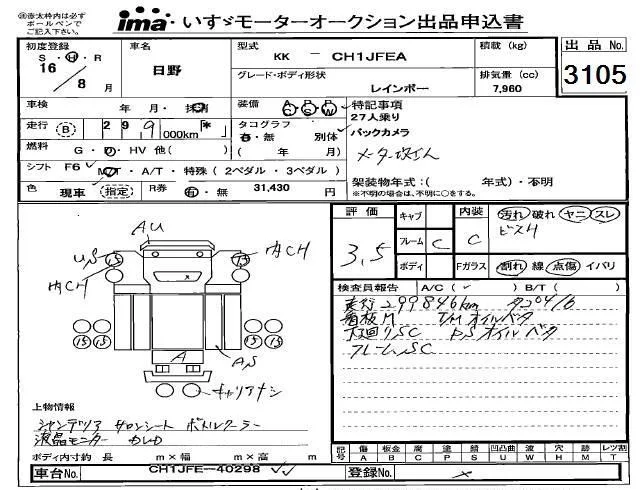 ⑱赤太枠内は必ず
ボールペンで
ご記入下さい。
ima・いすゞモーターオークション出品申込書
初度登録 車名 型式 積載 (kg) 出品No.
S・H・R 日野 KK － CH1JFEA
16／8月 グレード・ボディ形状 排気量 (cc) 3105
レインボー 7,960
車検 年 月・抹消 装備 AC PS PW 特記事項
27人乗り
走行 (B) 299,000km * タコグラフ バックカメラ
有・無 別体
燃料 G・D・HV 他( ) ( 年 月) メーター改ざん
シフト F6 MT・A/T・特殊 (2ペダル・3ペダル)
架装物年式:( 年式)・不明
※不明の場合は、不明に○をする。
色 現車 指定 R券 有・無 31,430 円
評価 キャブ 内装 汚れ 破れ ヤニ スレ
ビスH
3.5 フレーム C C
ボディ Fガラス 割れ 線 点傷 イバリ
AU
US 15 15 内CH
内CH
15 15 15 15
A
AS
キャリアナシ
検査員報告 A/C( ✓ ) B/T( )
走行299846km タコ0416
看板H T/Mオイルベタ
下廻りSC PSオイルベタ
フレームSC
上物情報
シャンデリア サロンシート ボトルクーラー
液晶モニター
ボディ内寸約 長 m×幅 m×高 m
記号 傷 板金 腐 塗 錆 凹凸曲 波 穴 跡 レツ割
A B C P S U W H M T
車台No. CH1JFE－40298 登録No.